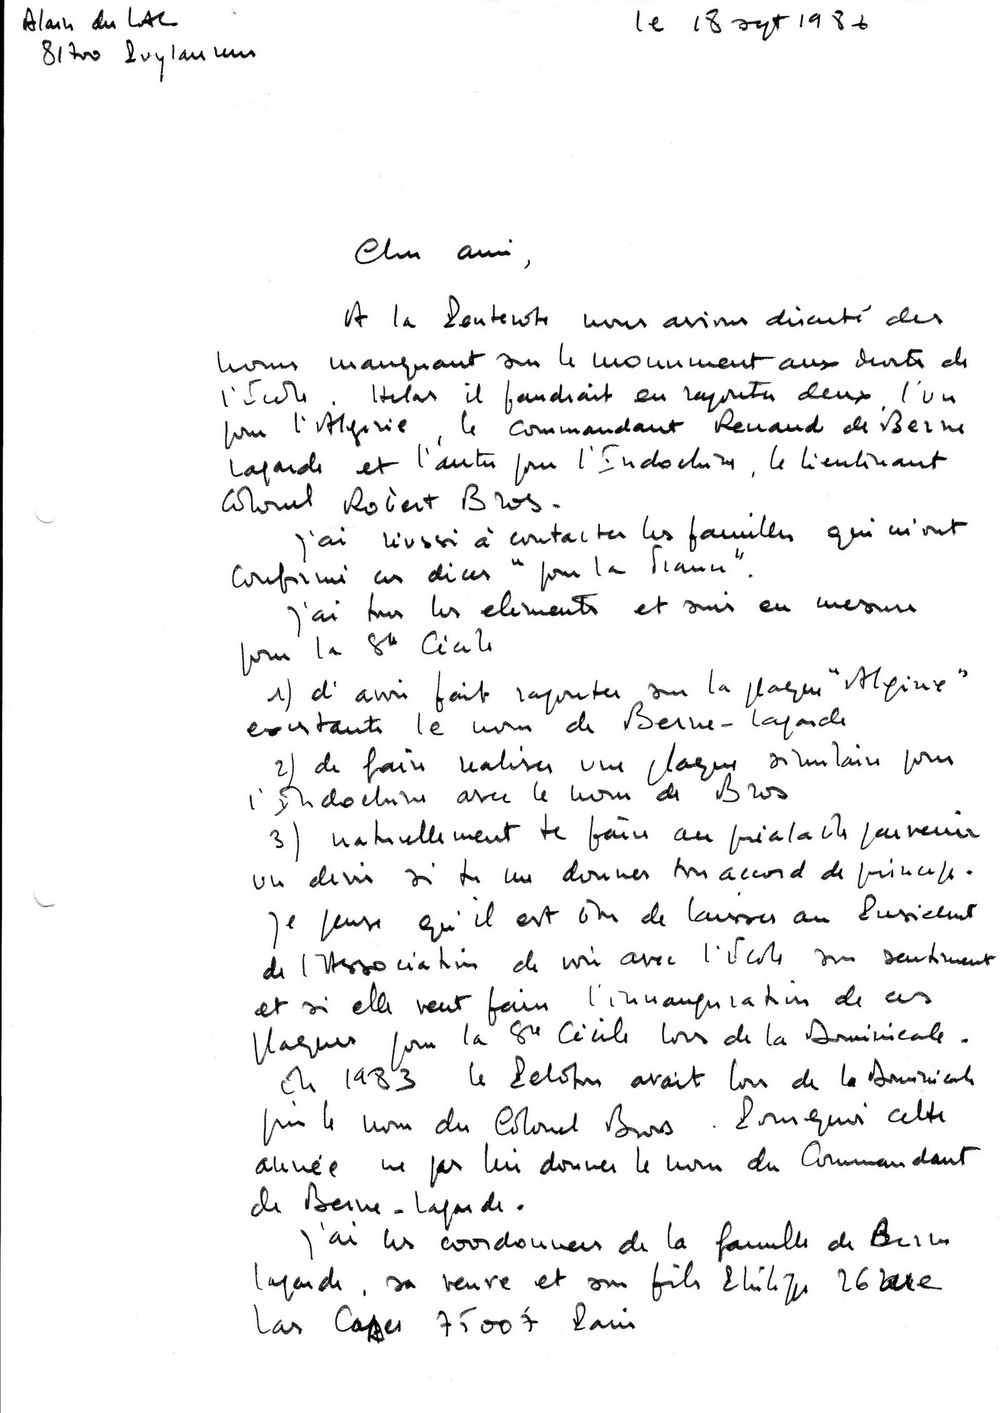 Alain du LAC
81700 Puylaurens
le 18 sept 1986
Cher ami,
A la Pentecôte nous avions discuté des
noms manquant sur le monument aux morts de
l'École. Hélas il faudrait en rajouter deux, l'un
pour l'Algérie, le Commandant Renaud de Berne
Lagarde et l'autre pour l'Indochine, le lieutenant
Colonel Robert Bros.
j'ai réussi à contacter les familles qui m'ont
confirmé ces décès "pour la France".
j'ai tous les éléments et suis en mesure
pour la Ste Cécile
1) d'avoir fait rajouter sur la plaque "Algérie"
existante le nom de Berne-Lagarde
2) de faire réaliser une plaque similaire pour
l'Indochine avec le nom de Bros
3) naturellement te faire au préalable parvenir
un devis si tu me donnes ton accord de principe.
je pense qu'il est bon de laisser au Président
de l'Association de voir avec l'École son sentiment
et si elle veut faire l'innauguration de ces
plaques pour la Ste Cécile lors de la Dominicale.
En 1983 le Peloton avait lors de la Dominicale
pris le nom du Colonel Bros. Pourquoi cette
année ne pas lui donner le nom du Commandant
de Berne-Lagarde.
j'ai les coordonnées de la famille de Berne
Lagarde, sa veuve et son fils Philippe 26 rue
Las Cases 75007 Paris